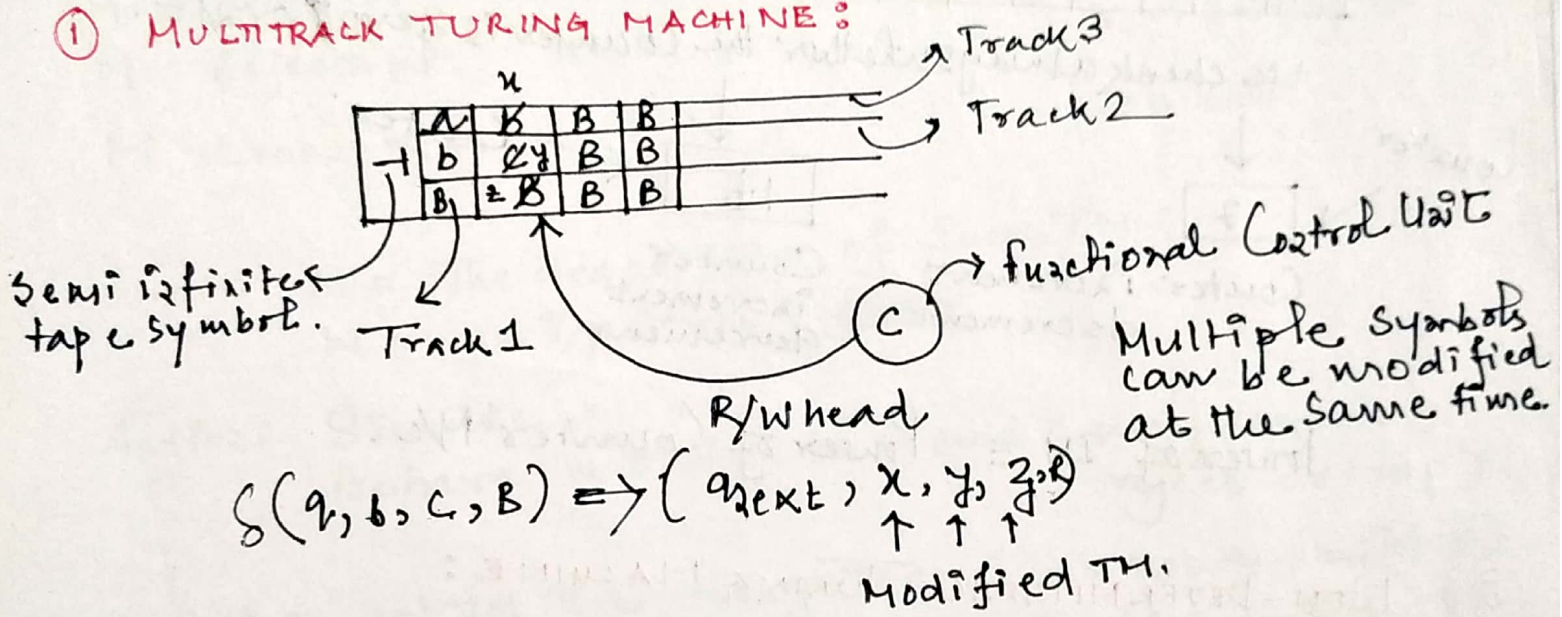 ① MULTITRACK TURING MACHINE :
Track 3
Track 2
x
a b B B
⊣ b c y B B
B z B B B
Semi infinite
tape symbol.
Track 1
C
functional Control Unit
R/W head
Multiple symbols
can be modified
at the same time.
δ(q, b, C, B) => (qnext, x, y, z, R)
↑ ↑ ↑
Modified TM.